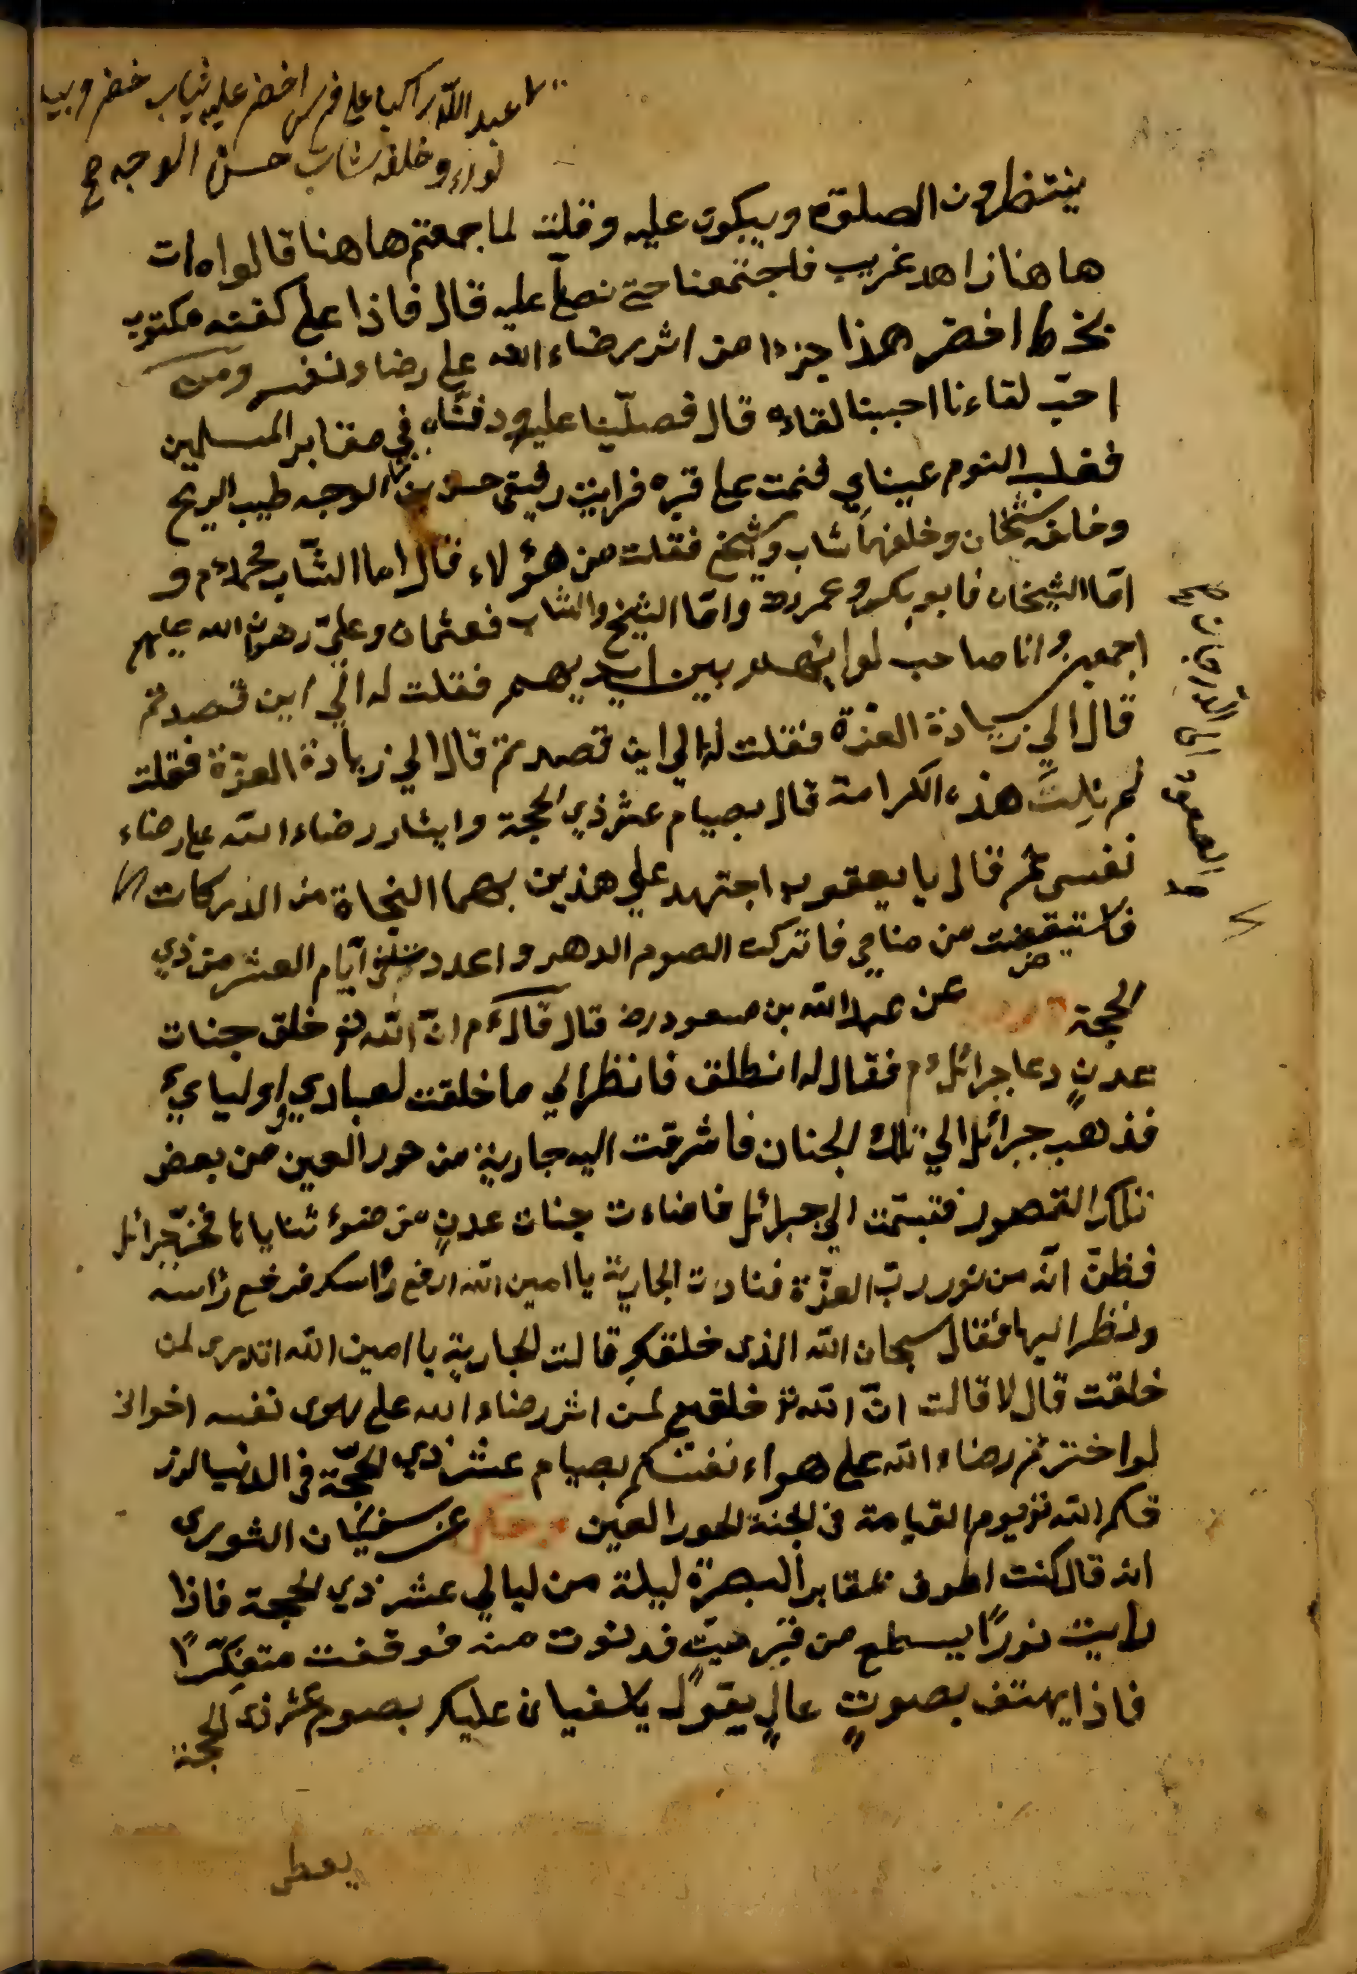 عبد الله راكبا على فرس اخضر عليه ثياب خضر وبيد
نور وخلفه شاب حسن الوجه صح
ينتظرون الصلوة ويبكون عليه وقلت لما جمعتم هاهنا قالوا مات
هاهنا زاهد غريب فاجتمعنا حتى نصلّي عليه قال فاذا على كفنه مكتوب
بخط اخضر هذا جزاء من اثر رضاء الله على رضاء نفسه ومن
احبّ لقاءنا احببنا لقاءه قال فصلّينا عليه ودفنّاه في مقابر المسلمين
فغلب النوم عيناي فنمت على قبره فرايت رفيقي حسن الوجه طيب الريح
وخلفه شيخان وخلفهما شاب وشيخ فقلت من هؤلاء فقال اما الشّاب محمد م و
امّا الشيخان فابو بكر وعمر رض وامّا الشيخ والشاب فعثمان وعليّ رضوان الله عليهم
اجمعين وانا صاحب لوائهم بين ايديهم فقلت له الي اين قصدتم
قال الي زيادة العزة فقلت له الي اين قصدتم قال الي زيادة العزّة فقلت
لم نِلتَ هذه الكرامة قال بصيام عشر ذي الحجة وايثار رضاء الله على رضاء
نفسي ثم قال يا يعقوب اجتهد علي هذين بهما النجاة من الدركات
الى الدرجات صح
فاستيقضت من منامي فاتركت الصوم الدهر واعدد سنن ايّام العشر من ذي
الحجة عن عبد الله بن مسعود رض قال قال م انّ الله تع خلق جنات
عدنٍ دعا جبرائل م فقال له انطلق فانظر الي ما خلقت لعبادي واوليايئ
فذهب جبرائل الي تلك الجنان فاشرقت اليه جارية من حور العين من بعض
تلك القصور فتبسّمت الي جبرائل فاضاءت جنات عدنٍ من ضوء ثناياها فخرّ جبرائل
فظنّ انّه من نور ربّ العزّة فنادت الجارية يا امين الله ارفع رأسك فرفع رأسه
ونظر اليها فقال سبحان الله الذى خلقكِ قالت الجارية يا امين الله اتدرى لمن
خلقت قال لا قالت انّ الله تع خلقني لمن اثر رضاء الله على هوى نفسه اخواني
لو اخترتم رضاء الله على هواء نفسكم بصيام عشر ذي الحجّة في الدنيا لرز
قكم الله تع يوم القيامة في الجنة الحور العين عن سفيان الثورى
انه قال كنت اطوف بمقابر البصرة ليلة من ليالي عشر ذي الحجة فاذا
رايت نورًا يسطع من قبر ميّت فدنوت منه فوقفت متفكّرًا
فاذا يهتف بصوتٍ عالٍ يقول يا سفيان عليك بصوم عشر ذى الحجة
يعطى